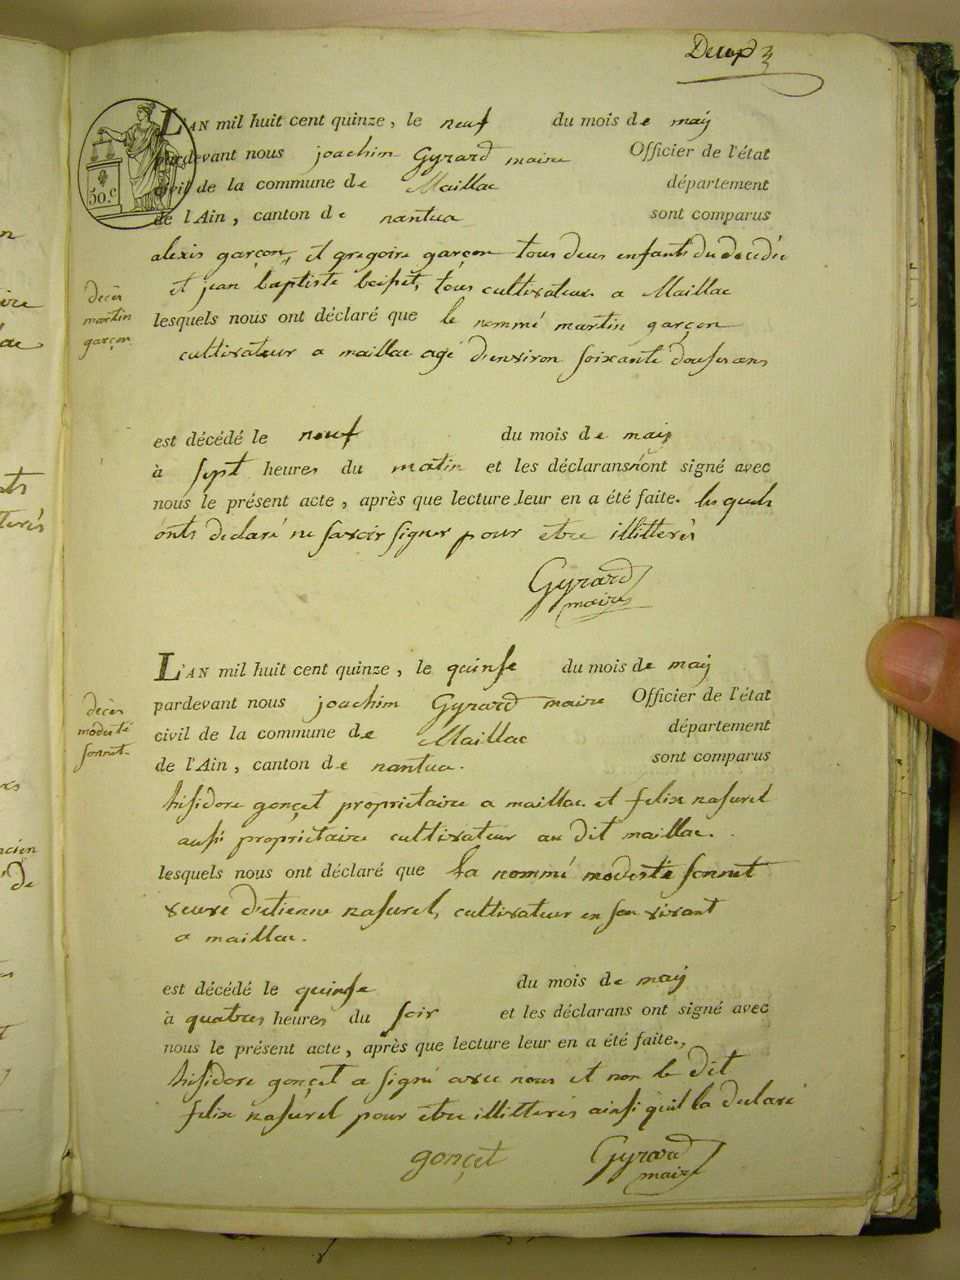 50.c
L'AN mil huit cent quinze, le neuf du mois de maÿ
pardevant nous joachim Gyrard maire Officier de l'état
civil de la commune de Maillac département
de l'Ain, canton de nantua sont comparus
alexis garçon, et gregoire garçon tous deux enfants du decedée
et jean baptiste tous cultivateur a Maillac
decès
martin
garçon
lesquels nous ont déclaré que le nommé martin garçon
cultivateur a maillac agé d'environ soixante douse ans
est décédé le neuf du mois de maÿ
à sept heures du matin et les déclarans n'ont signé avec
nous le présent acte, après que lecture leur en a été faite. les quels
onts declaré ne savoir signer pour etre illitterés
Gyrard
maire
L'AN mil huit cent quinze, le quinse du mois de maÿ
pardevant nous joachim Gyrard maire Officier de l'état
civil de la commune de Maillac département
de l'Ain, canton de nantua. sont comparus
decès
modeste
sonnet
hisidore gonçet proprietaire a maillac et felix nasurel
aussi propriétaire cultivateur au dit maillac.
lesquels nous ont déclaré que la nommé modeste sonnet
veuve d'etienne nasurel, cultivateur en son vivant
a maillac.
est décédé le quinse du mois de maÿ
à quatres heures du soir et les déclarans ont signé avec
nous le présent acte, après que lecture leur en a été faite.,
hisidore gonçet a signé avec nous et non le dit
felix nasurel pour etre illitterés ainsi quil la declaré
gonçet Gyrard
maire